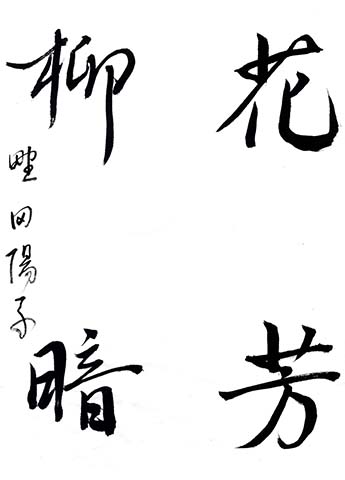 花芳
柳暗
野田陽子